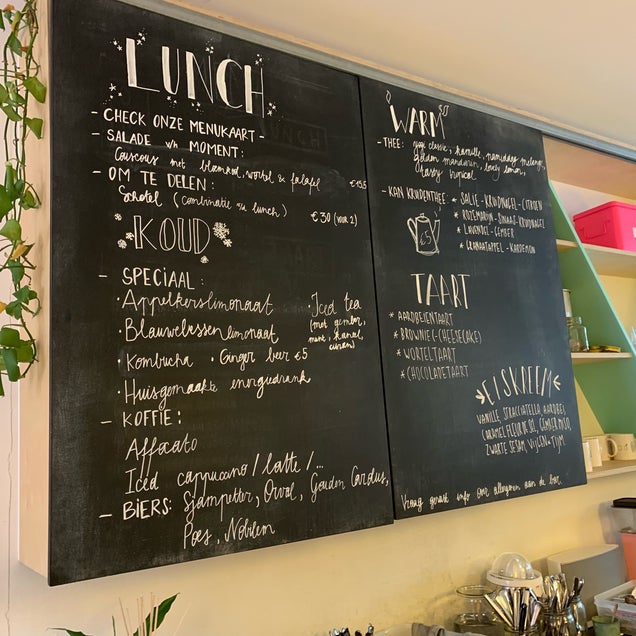 LUNCH
- CHECK ONZE MENUKAART -
- SALADE vh MOMENT:
Couscous met bloemkool, wortel & falafel
- OM TE DELEN:
Schotel (combinatie vu lunch) €30 (voor 2)
KOUD
- SPECIAAL:
· Appelkerslimonaat
· Blauwebessenlimonaat
Kombucha · Ginger bier €5
· Huisgemaakte energiedrank
· Iced tea
(met gember,
munt, kaneel,
- KOFFIE:
Affocato
Iced cappuccino / latte / ...
- BIERS: Sjampetter, Orval, Gouden Carolus,
Poes,
WARM
- THEE: classic, kamille, namiddag melange,
golden mandarin, lovely lemon,
tasty tropical
- KAN KRUIDENTHEE: * SALIE - KRUIDNAGEL - CITROEN
* ROZEMARIJN - SINAAS - KRUIDNAGEL
* LAVENDEL - GEMBER
* GRANAATAPPEL - KARDEMON
€5
TAART
* AARDBEIENTAART
* BROWNIE (-CHEESECAKE)
* WORTELTAART
* CHOCOLADETAART
EISKREEM
VANILLE, STRACCIATELLA, AARDBEI,
CARAMEL FLEUR DE SEL, GEMBER MISO,
ZWARTE SESAM, VIJGEN-TIJM
Vraag gerust info over allergenen aan de bar.